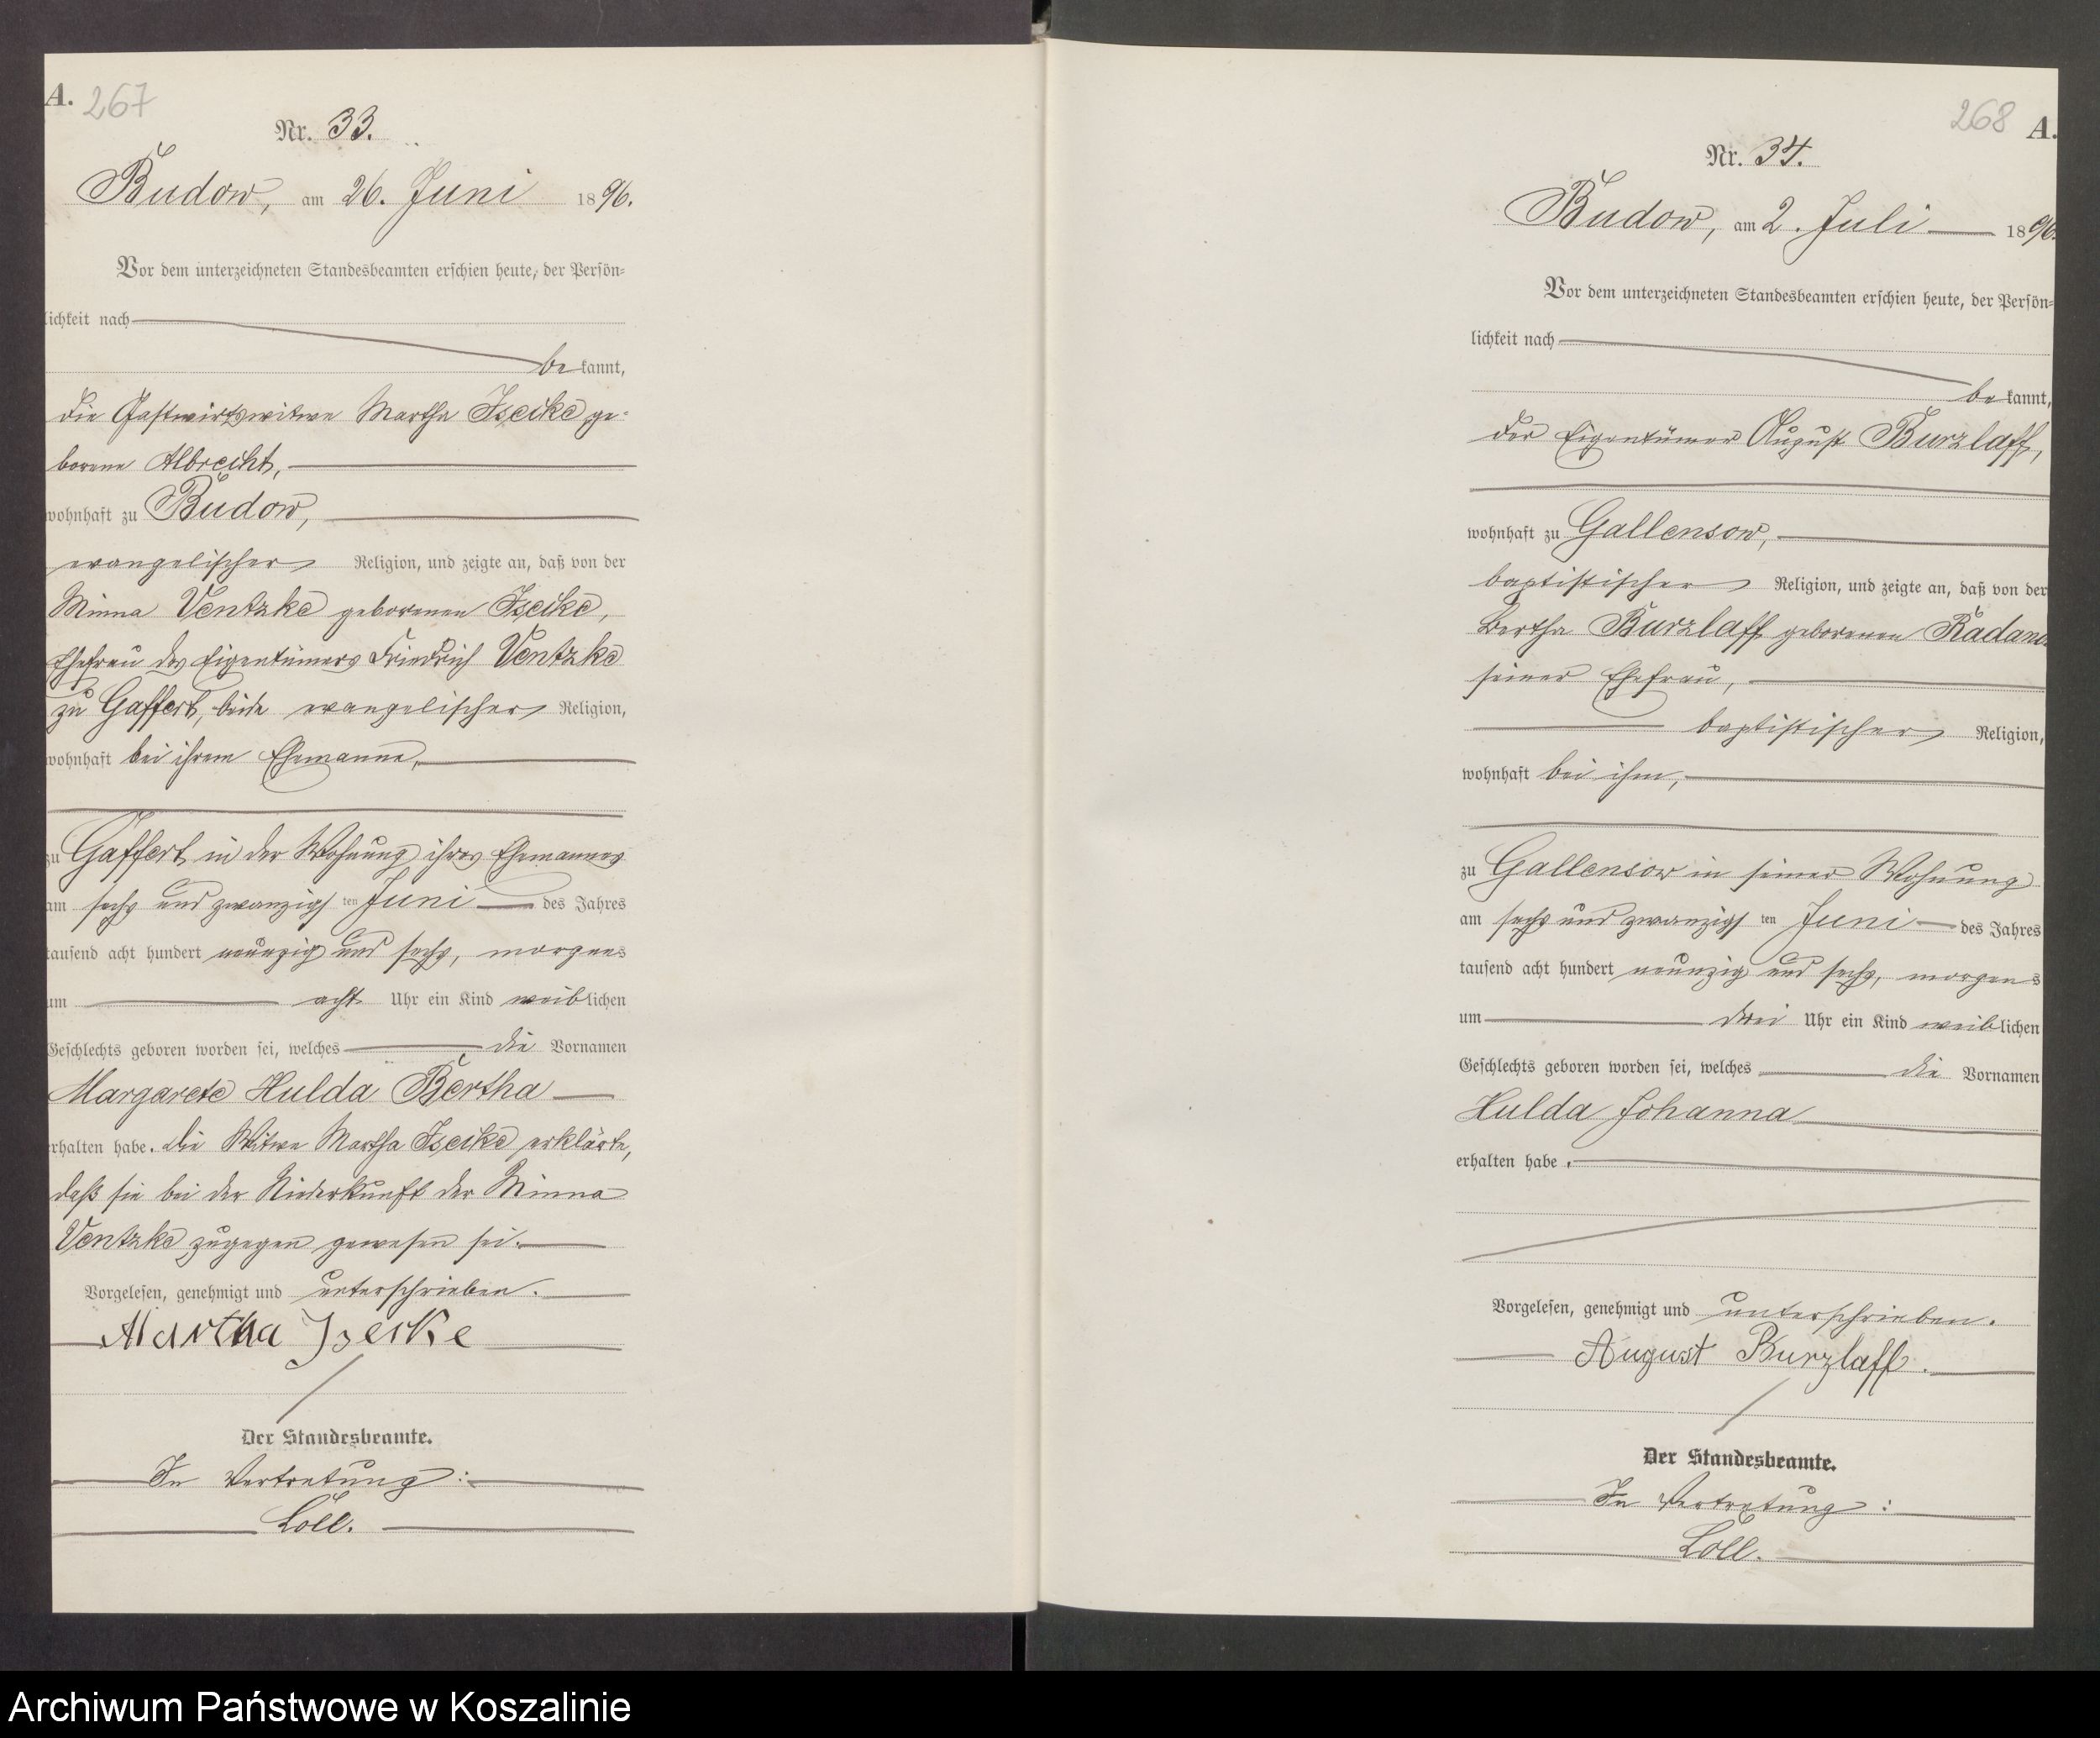 A. 267
Nr. 33.
Budow, am 26. Juni 1896.
Vor dem unterzeichneten Standesbeamten erschien heute, der Persön-
lichkeit nach
bekannt,
die Gastwirtswitwe Martha Iseike ge-
borene Albrecht,
wohnhaft zu Budow,
evangelischer Religion, und zeigte an, daß von der
Minna Ventzke geborenen Iseike,
Ehefrau des Eigentümers Friedrich Ventzke
zu Gaffert, beide evangelischer Religion,
wohnhaft bei ihrem Ehemanne,
zu Gaffert in der Wohnung ihres Ehemannes
am sechs und zwanzigs ten Juni des Jahres
tausend acht hundert neunzig und sechs, morgens
um acht Uhr ein Kind weiblichen
Geschlechts geboren worden sei, welches die Vornamen
Margarete Hulda Bertha
erhalten habe. Die Witwe Martha Iseike erklärte,
daß sie bei der Niederkunft der Minna
Ventzke zugegen gewesen sei.
Vorgelesen, genehmigt und unterschrieben.
Martha Iseike
Der Standesbeamte.
In Vertretung:
Löll.
268 A.
Nr. 34.
Budow, am 2. Juli 1896.
Vor dem unterzeichneten Standesbeamten erschien heute, der Persön-
lichkeit nach
bekannt,
der Eigentümer August Burzlaff,
wohnhaft zu Gallensow,
baptistischer Religion, und zeigte an, daß von der
Bertha Burzlaff geborenen
seiner Ehefrau,
baptistischer Religion,
wohnhaft bei ihm,
zu Gallensow in seiner Wohnung
am sechs und zwanzigs ten Juni des Jahres
tausend acht hundert neunzig und sechs, morgens
um drei Uhr ein Kind weiblichen
Geschlechts geboren worden sei, welches die Vornamen
Hulda Johanna
erhalten habe.
Vorgelesen, genehmigt und unterschrieben.
August Burzlaff.
Der Standesbeamte.
In Vertretung:
Löll.
Archiwum Państwowe w Koszalinie